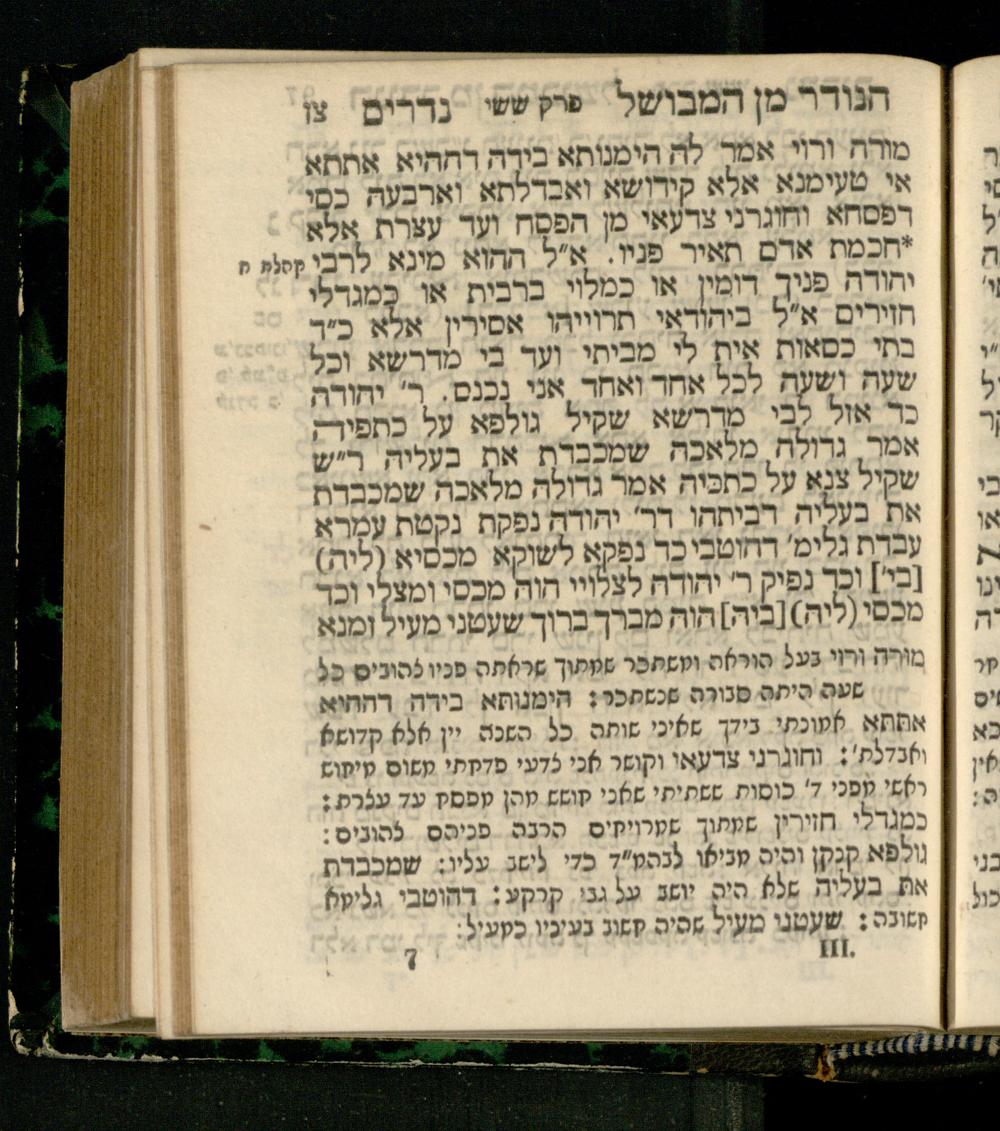 הנודר מן המבושל פרק ששי נדרים צז
מורה ורוי אמר לה הימנותא בידה דההיא אתתא
אי טעימנא אלא קידושא ואבדלתא וארבעה כסי
דפסחא וחוגרני צדעאי מן הפסח ועד עצרת אלא
*חכמת אדם תאיר פניו. א״ל ההוא מינא לרבי
קהלת ח
יהודה פניך דומין או כמלוי ברבית או כמגדלי
חזירים א״ל ביהודאי תרוייהו אסירין אלא כ״ד
בתי כסאות אית לי מביתי ועד בי מדרשא וכל
שעה ושעה לכל אחד ואחד אני נכנס. ר׳ יהודה
כד אזל לבי מדרשא שקיל גולפא על כתפיה
אמר גדולה מלאכה שמכבדת את בעליה ר״ש
שקיל צנא על כתפיה אמר גדולה מלאכה שמכבדת
את בעליה דביתהו דר׳ יהודה נפקת נקטת עמרא
עבדת גלימ׳ דהוטבי כד נפקא לשוקא מכסיא (ליה)
[בי׳] וכד נפיק ר׳ יהודה לצלויי הוה מכסי ומצלי וכד
מכסי (ליה) [ביה] הוה מברך ברוך שעטני מעיל זמנא
מורה ורוי בעל הוראה ומשתכר שמתוך שראתה פניו צהובים כל
שעה היתה סבורה שנשתכר: הימנותא בידה דההיא
אתתא אמונתי בידך שאיני שותה כל השנה יין אלא קדושא
ואבדלת׳: וחוגרני צדעאי וקושר אני צדעי פדקתי משום מיחוש
ראשי מפני ד׳ כוסות ששתיתי שאני חושש מהן מפסח עד עצרת:
כמגדלי חזירין שמתוך שמרויחים הרבה פניהם צהובים:
גולפא קנקן והיה מביאו לבהמ״ד כדי לישב עליו: שמכבדת
את בעליה שלא היה יושב על גבי קרקע: דהוטבי גלימא
חשובה: שעטני מעיל שהיה חשוב בעיניו כמעיל:
III. 7